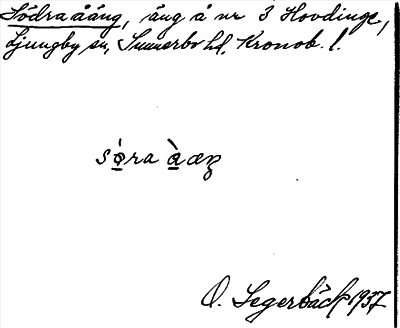 Södra åäng, äng å nr 3 Hovdinge,
Ljungby sn, Sunnerbo hd, Kronob. l.
sǿra å̀æŋ
O. Segerbäck 1937